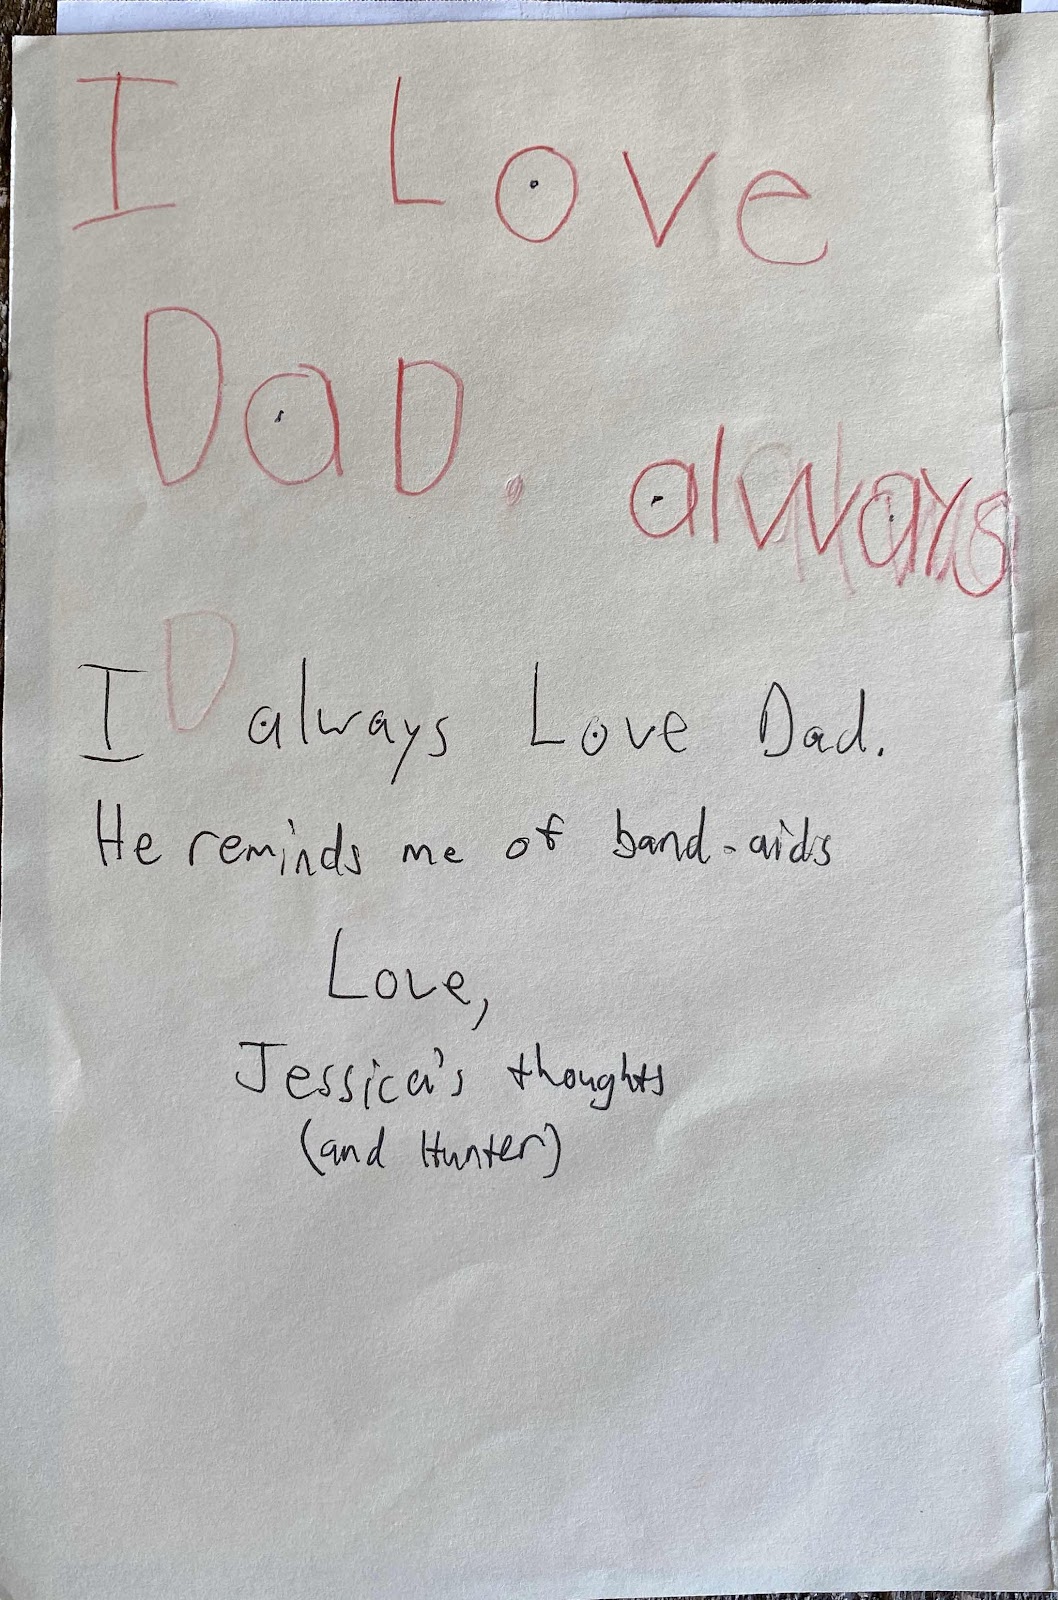 I Love
DaD. always
D
I always Love Dad.
He reminds me of band-aids
Love,
Jessica's thoughts
(and Hunter)